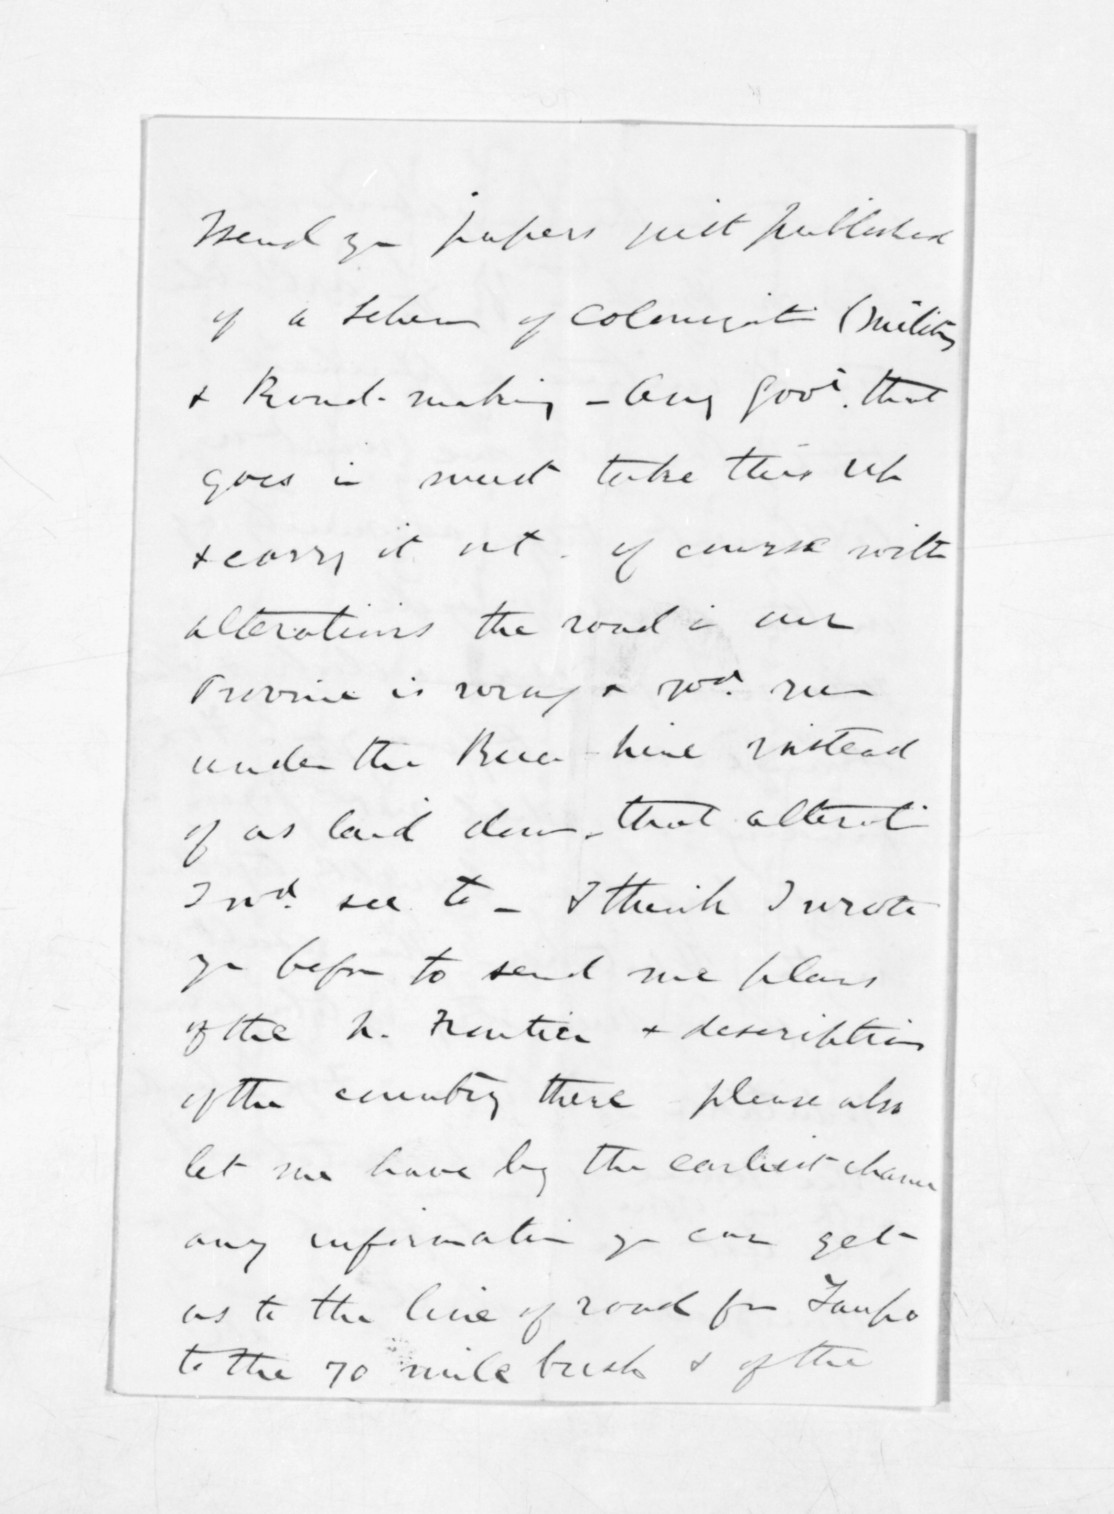 I send you papers just published
of a scheme of Colonization (military
& Road-making – Any Govt. that
goes in must take this up
& carry it out. of course with
alterations the road in our
Province is wrong & wd. run
under the hine instead
of as laid down – that alteration
I wd. see to – I think I wrote
you before to send me plans
of the N. Frontier & description
of the country there please also
let me have by the earliest chance
any information you can get
as to the line of road from Taupo
to the 70 mile bush & of the